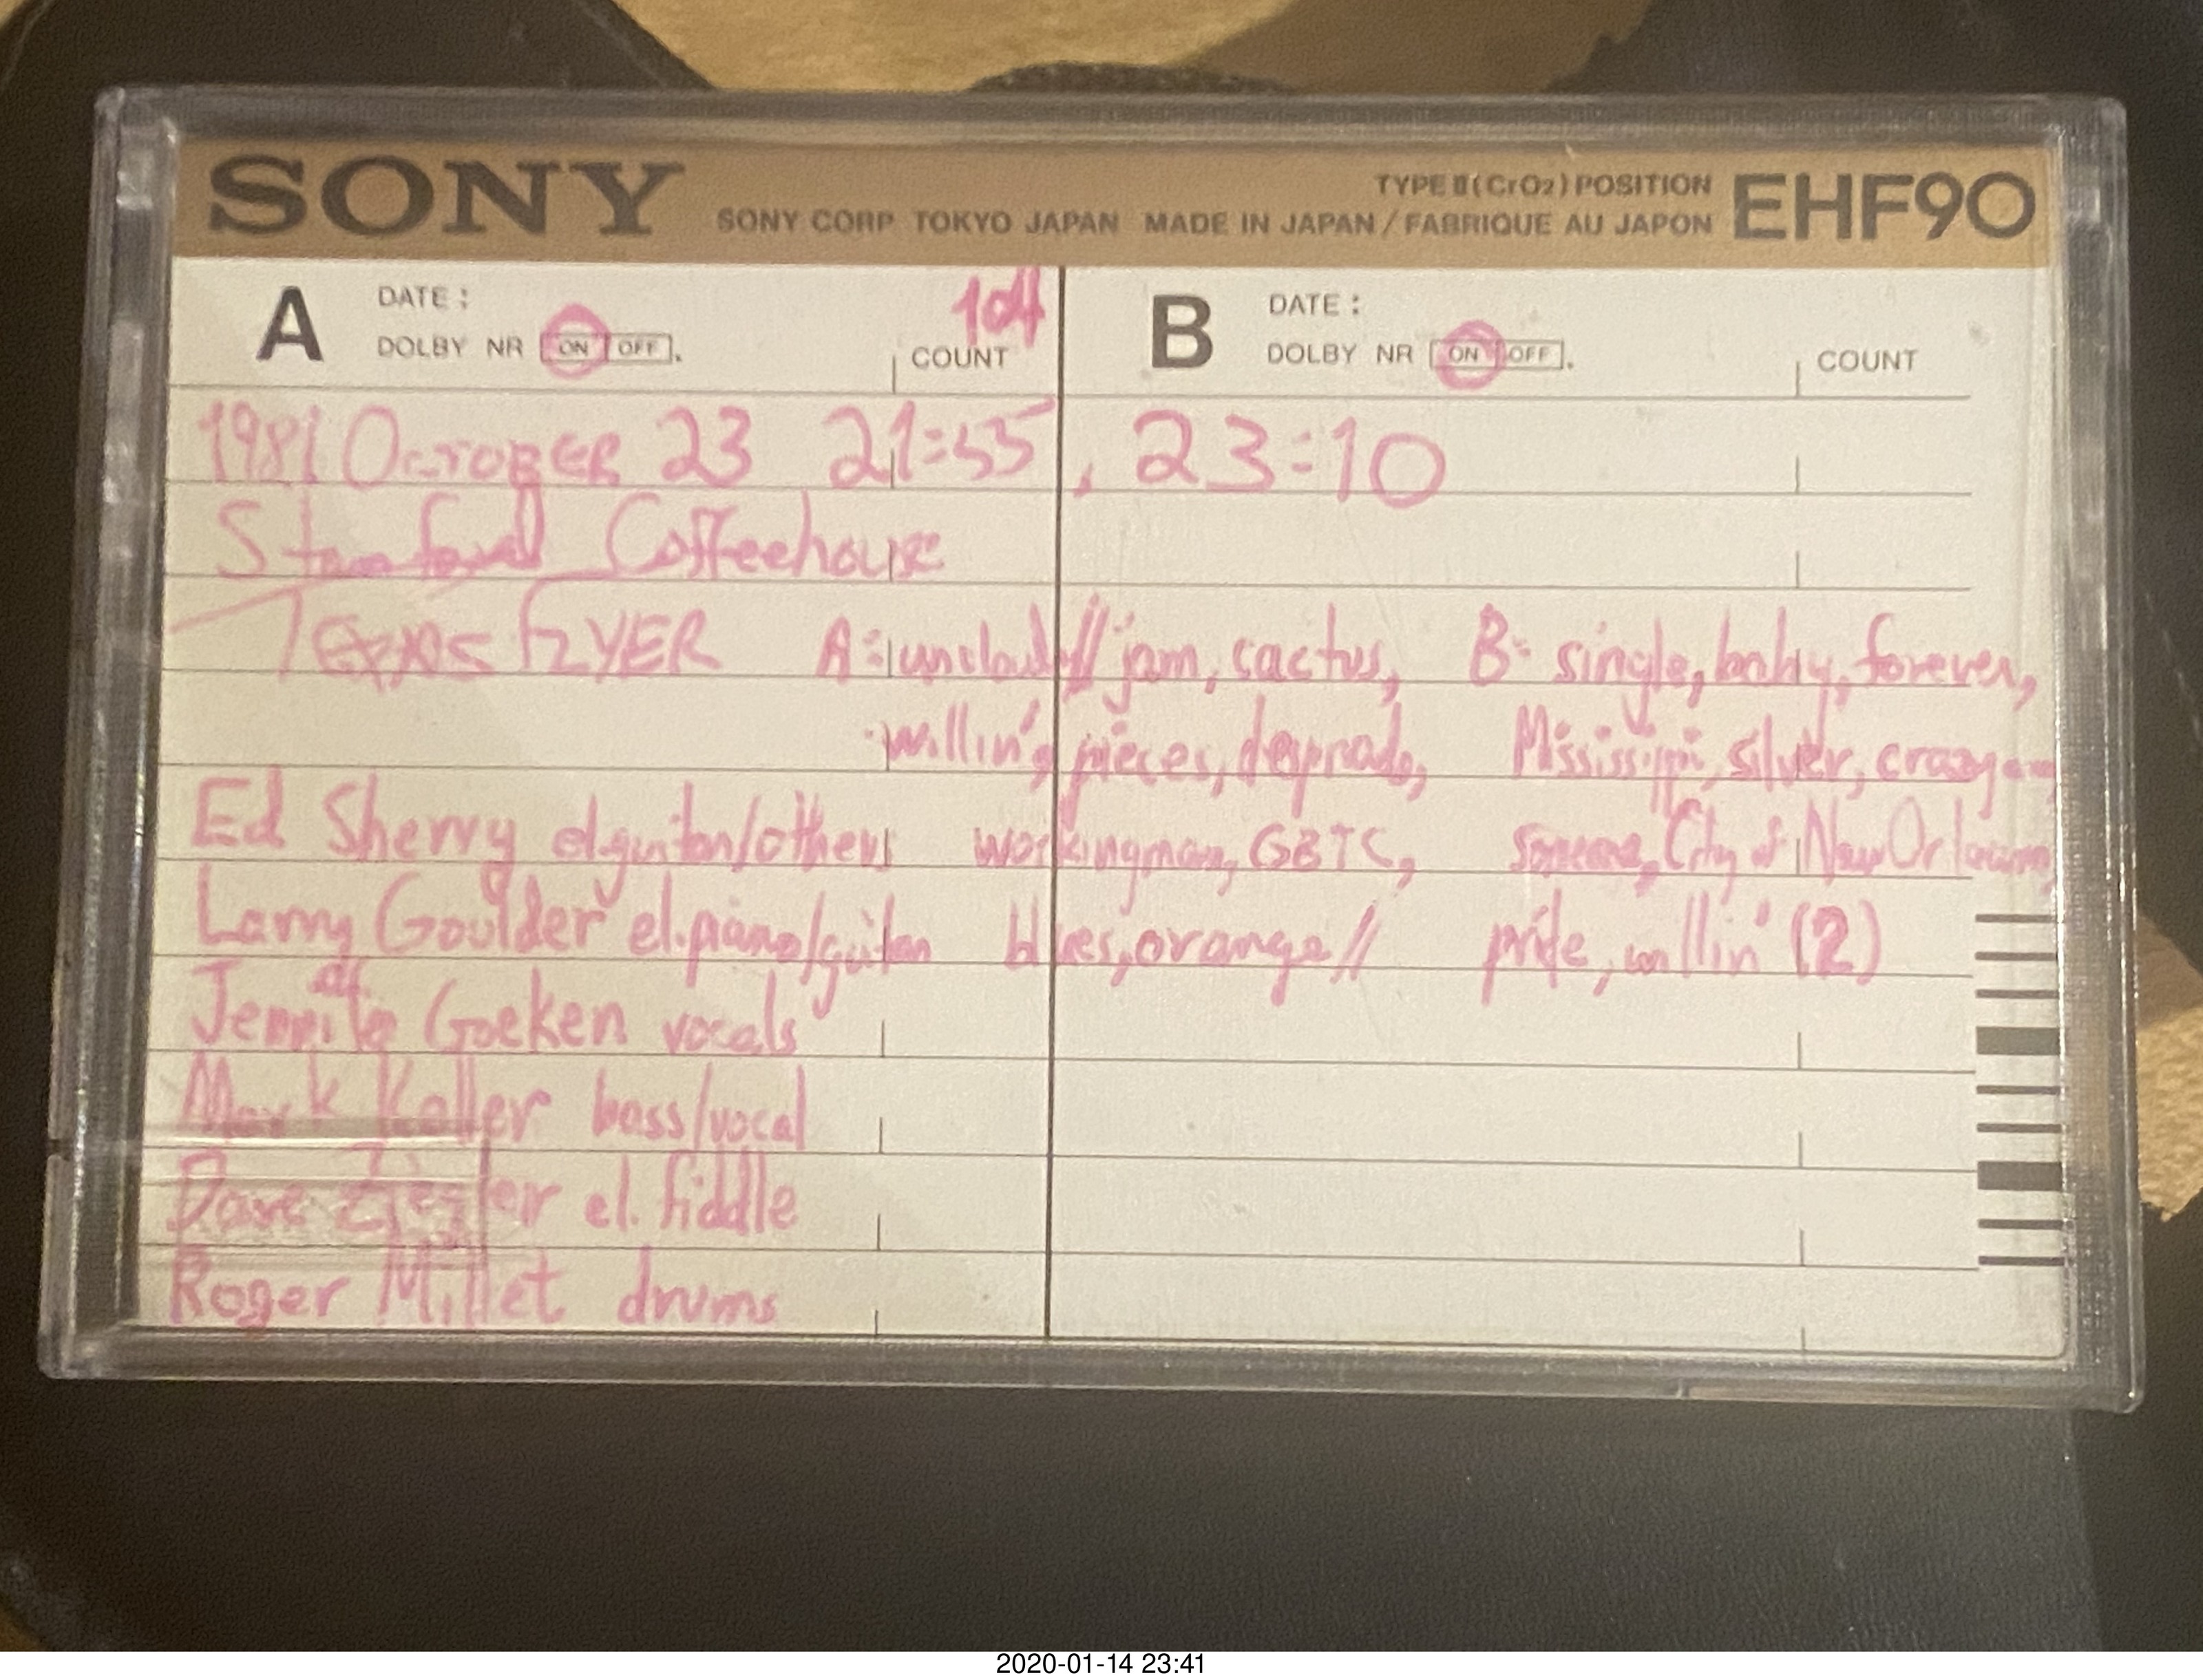 SONY
TYPE II (CrO2) POSITION
SONY CORP TOKYO JAPAN MADE IN JAPAN / FABRIQUE AU JAPON
EHF90
A DATE :
DOLBY NR ON OFF. COUNT
104
B DATE :
DOLBY NR ON OFF. COUNT
1981 October 23 21:55, 23:10
Stanford Coffeehouse
TEXAS FLYER A: uncloudy// jam, cactus, B: single, baby, forever,
willin', pieces, desprado, Mississippi, silver, crazy
Ed Sherry el.guitar/others workingman, GBTC, someone, City of New Orleans,
Larry Goulder el.piano/guitar blues, orange// pride, willin' (2)
Jennifer Goeken vocals
Mark Koller bass/vocal
Dave Ziegler el. fiddle
Roger Millet drums
2020-01-14 23:41